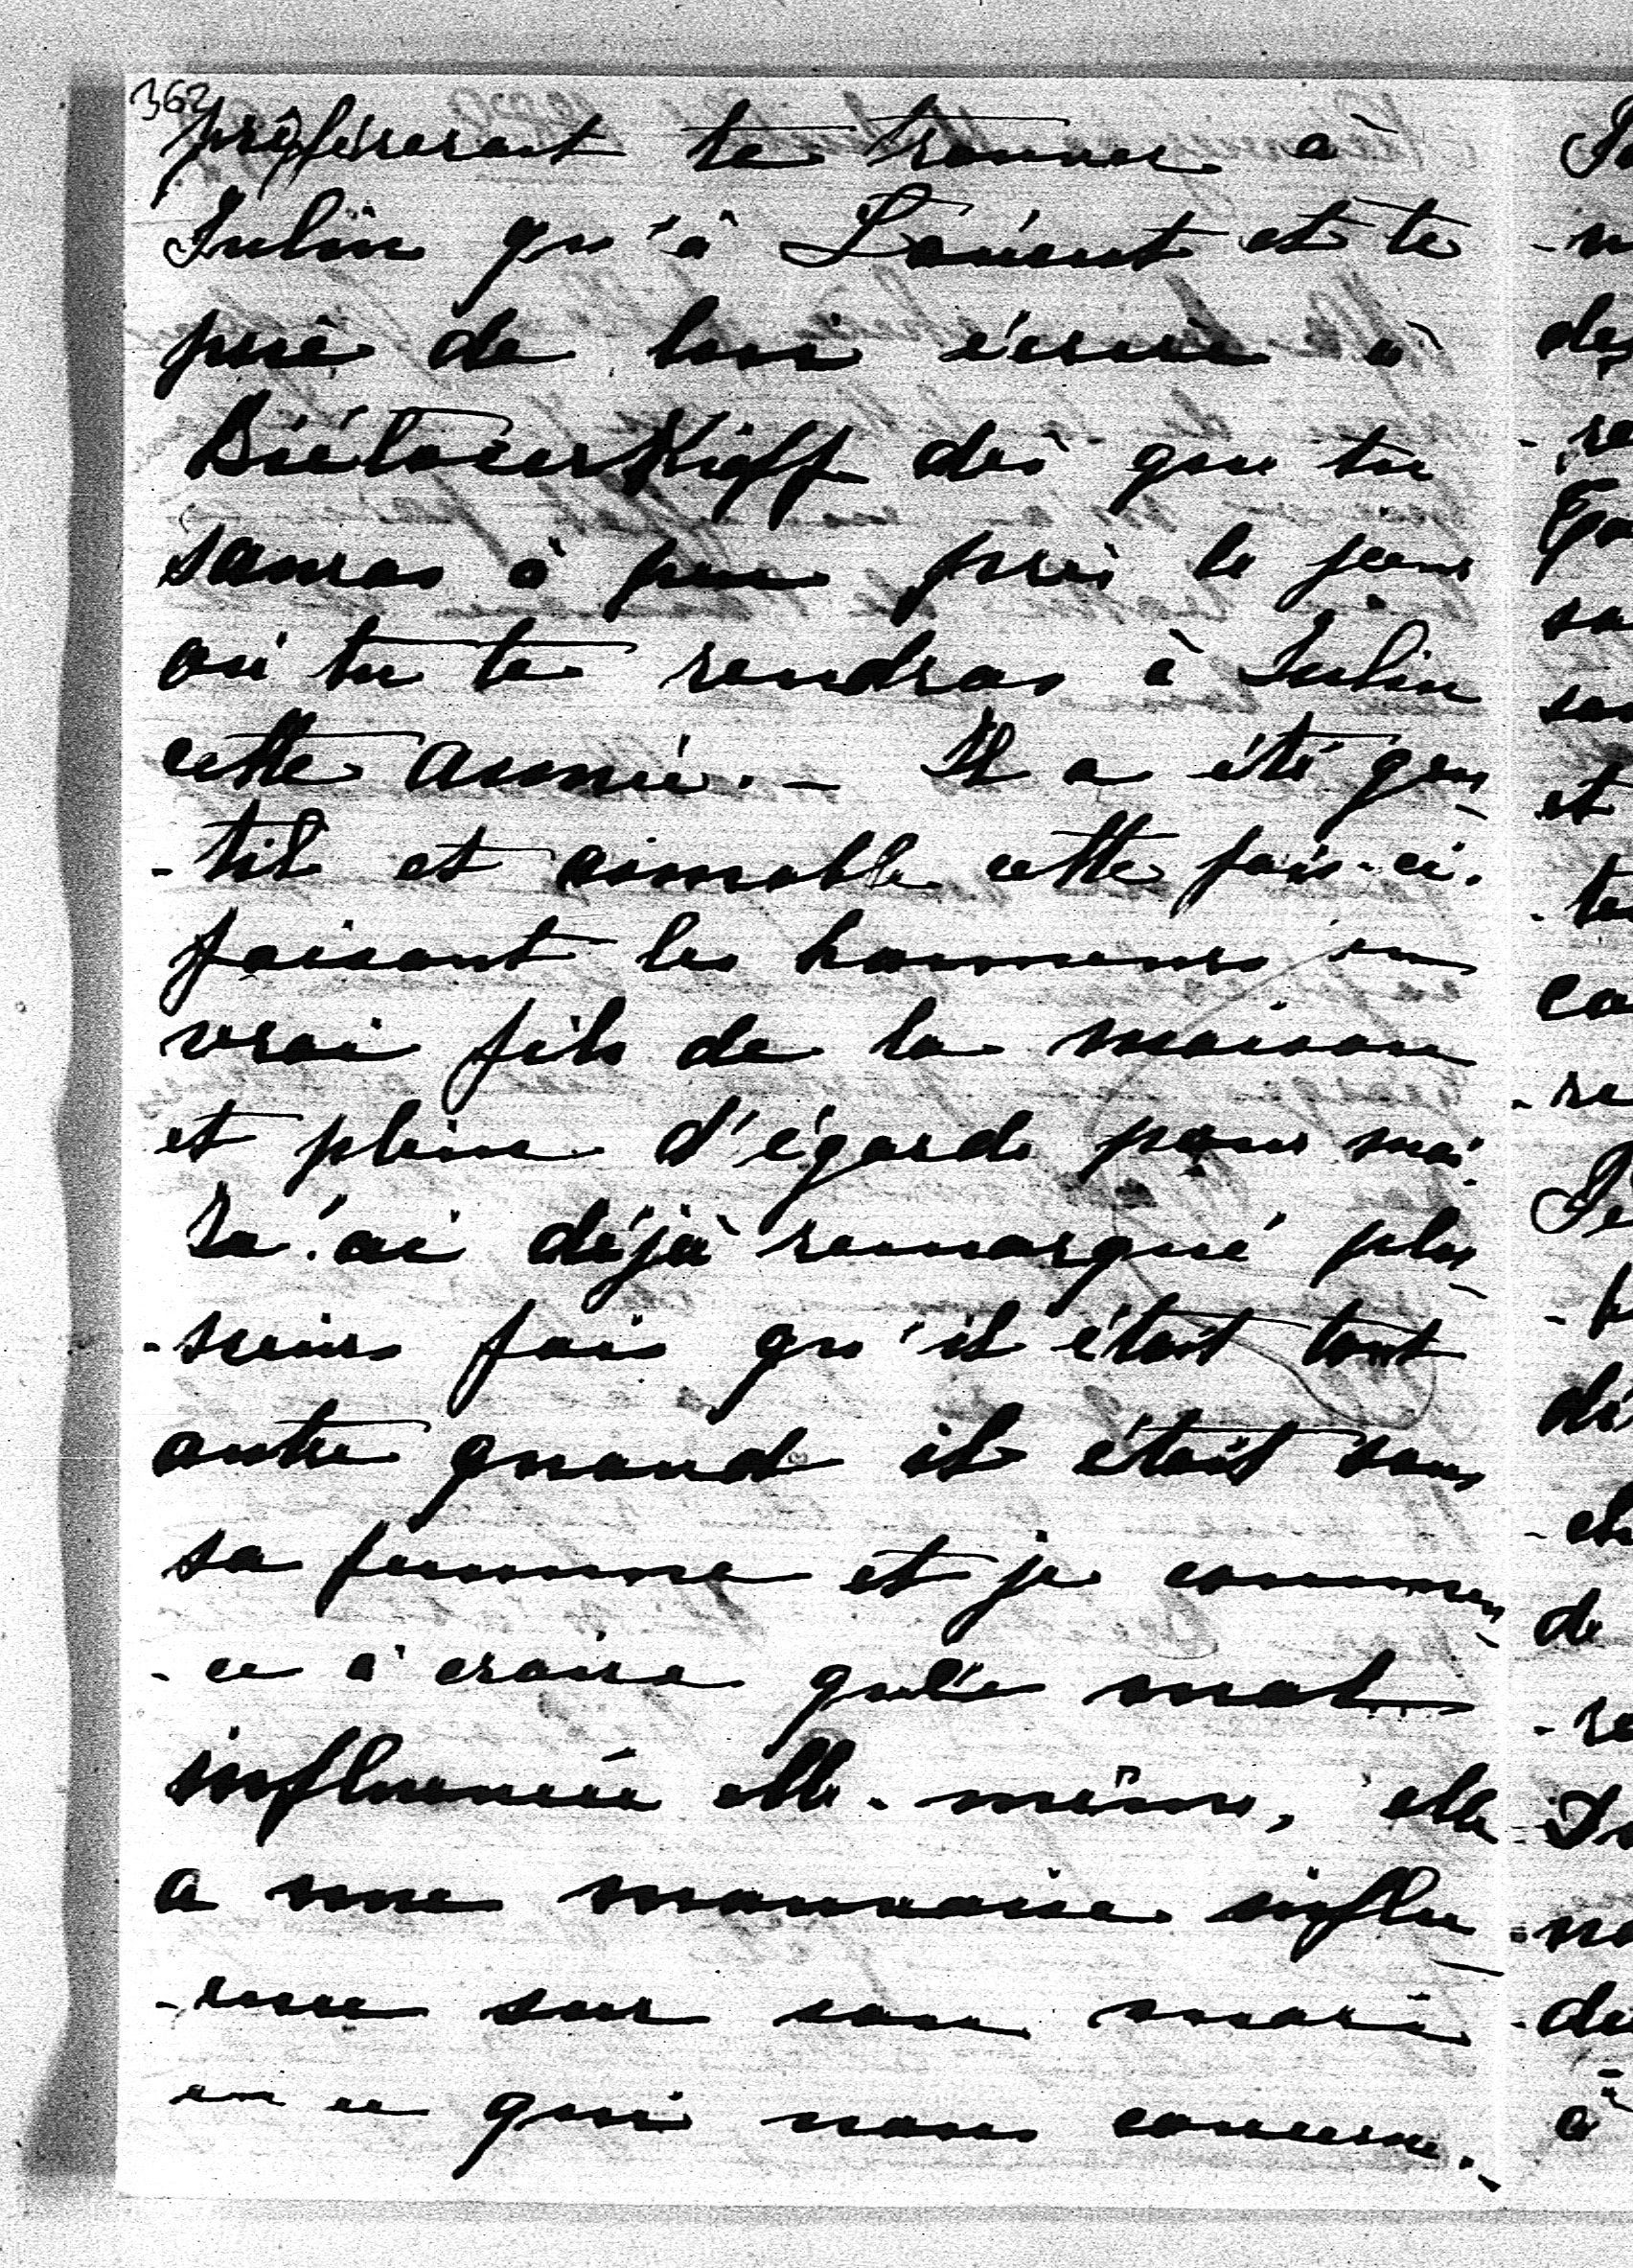 362
préférerait te trouver à
Julin qu'à Lancut et te
prie de lui écrire à
BiélocerKieff dès que tu
sauras à peu près le jour
où tu te rendras à Julin
cette année. - Il a été gen-
-til et aimable cette fois-ci.
faisant les honneurs en
vrai fils de la maison
et plein d'égards pour moi.
J'ai déjà remarqué plu-
-sieurs fois qu'il était tout
autre quand il était sans
sa femme et je commen-
-ce à croire que mal
influencée elle-même, elle
a une mauvaise influ-
-ence sur son mari
en ce qui nous concerne. -